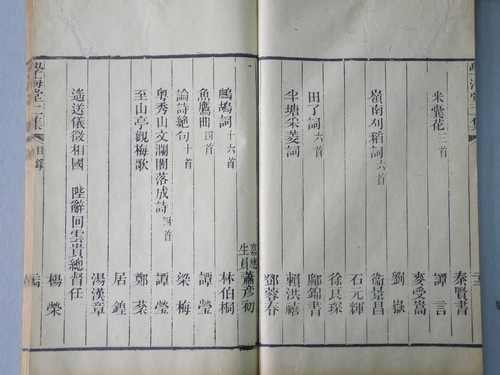 秦賢書
米囊花二首 譚言
麥受嵩
劉嶽
嶺南刈稻詞六首 衞景昌
石元輝
徐良琛
田了詞十六首 鄺錦書
半塘采菱詞 賴洪禧
鄧蓉春
生員蕭彥初
鷓鴣詞十六首 林伯桐
魚鷹曲四首 譚瑩
論詩絶句十首 梁梅
粵秀山文瀾閣落成詩四首 譚瑩
至山亭觀梅歌 鄭棻
居鍠
湯漢章
遙送儀徵相國 陛辭回雲貴總督任
楊榮
學海堂二集 目錄